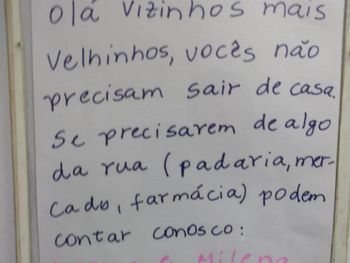 olá vizinhos mais
velhinhos, vocês não
precisam sair de casa.
se precisarem de algo
da rua (padaria, mer-
cado, farmácia) podem
contar conosco:
e Milena